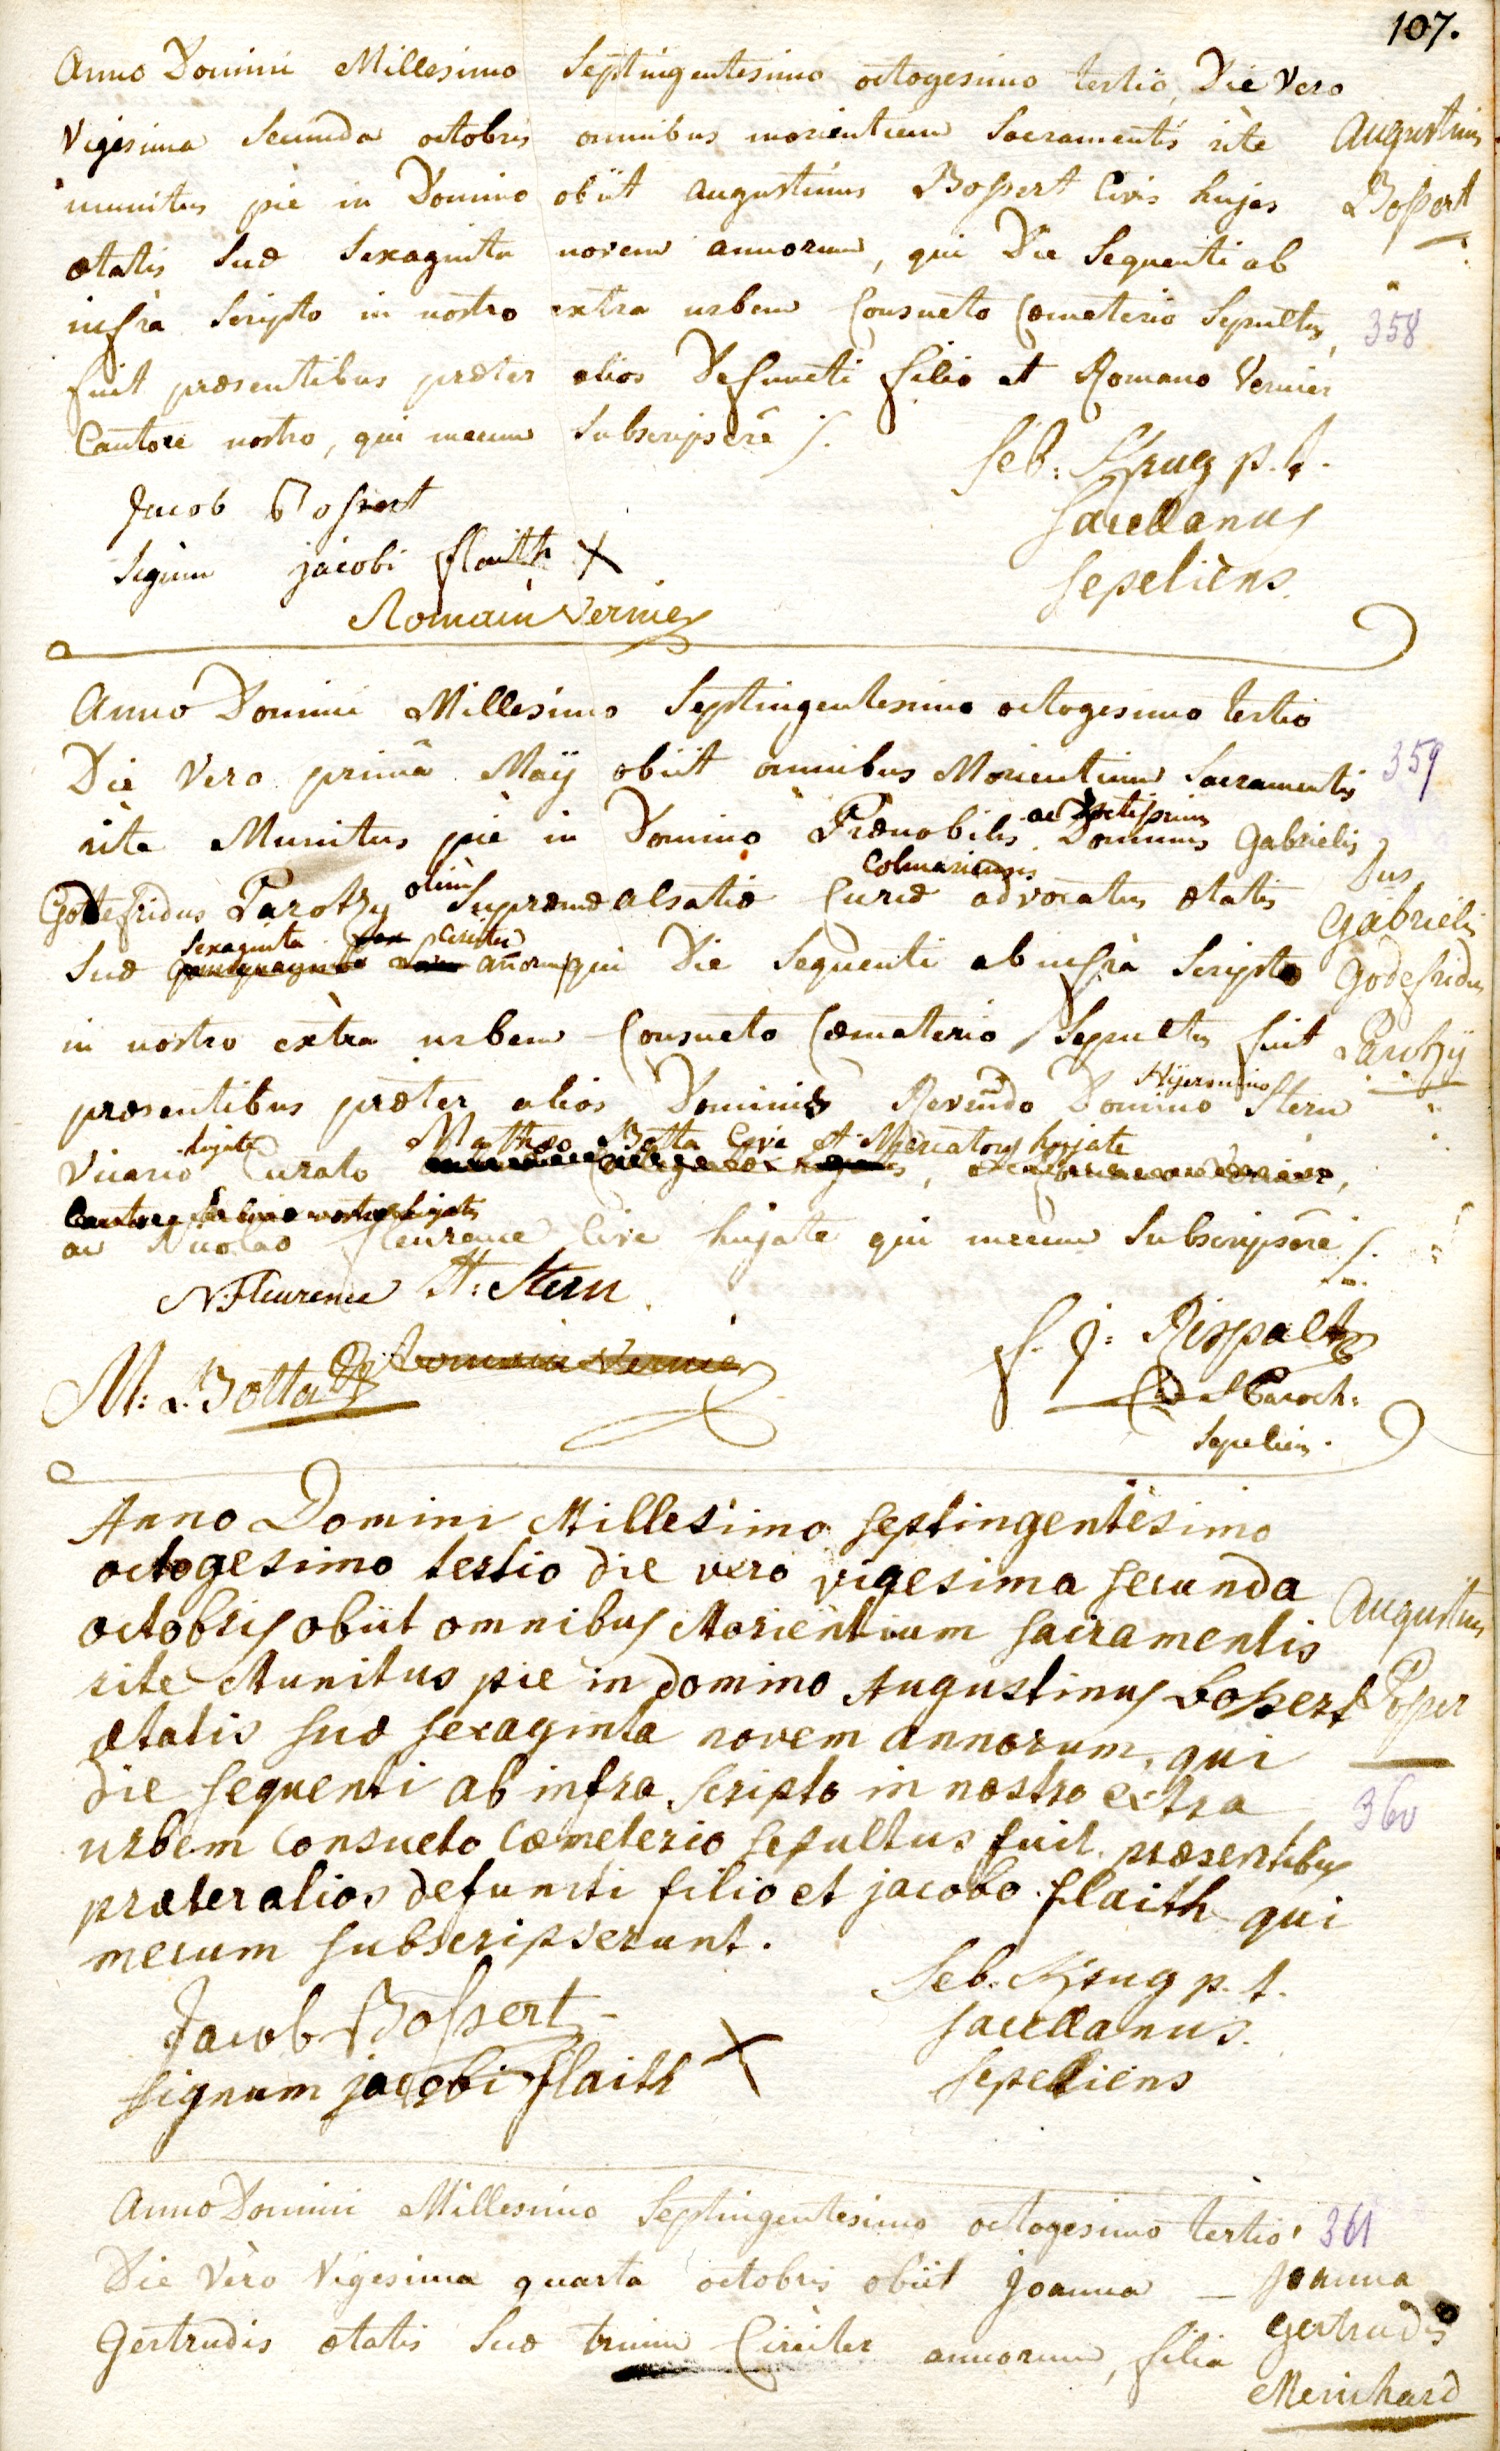 107.
Anno Domini Millesimo Septingentesimo octogesimo tertio, Die Vero
Vigesima Secunda octobris omnibus morientium Sacramentis rite
munitus piè in Domino obiit Augustinus Bossert Civis hujas
ætatis Suæ Sexaginta novem annorum, qui Die Sequenti ab
infrà Scripto in nostro extra urbem Consueto Cœmeterio Sepultus,
fuit præsentibus præter alios Defuncti filio et Romano Vernier
Cantore nostro, qui mecum Subscripserũ /.
Augustinus
Bossert
358
Jacob Bossert
Signum jacobi flaith X
Romain Vernier
Seb: Krug p. t.
Sacellanus
Sepeliens.
Anno Domini Millesimo Septingentesimo octogesimo tertio
Die Vero primâ Maÿ obiit omnibus Morientium Sacramentis
ritè Munitus piè in Domino Prænobilis ac Doctissimus Dominus Gabrielis
Godefridus Parotzy olim Supremæ Alsatiæ Curiæ Colmariensis advocatus ætatis
Suæ Sexaginta Circiter añorum qui Die Sequenti ab infrà Scripto
in nostro extrà urbem Consueto Cœmeterio Sepultus fuit
præsentibus præter alios Dominis Revendo Domino Hijeronimo Stern
Vicario hujate Curato Mathæo Botta Cive et Mercatore hujate
ac Nicolao fleurence Cive hujate qui mecum Subscripsere /.
359
Dus
Gabrielis
Godefridus
Parotzÿ
N: Fleurence H: Stern
M: Botta Romain Vernier
f. J: Rispalt
Paroch:
Sepeliens.
Anno Domini Millesimo septingentesimo
octogesimo tertio die vero vigesima secunda
octobris obiit omnibus Morientium sacramentis
rite Munitus pie in domino Augustinus bossert
ætatis suæ sexaginta novem annorum, qui
die sequenti ab infra scripto in nostro extra
urbem consueto cœmeterio sepultus fuit præsentibus
præter alios defuncti filio et jacobo flaith qui
mecum subscripserunt.
Augustinus
Posser
360
Jacob Bossert
signum jacobi flaith X
Seb. Krug p. t.
sacellanus.
sepeliens
Anno Domini Millesimo Septingentesimo octogesimo tertio
Die Vero Vigesima quarta octobris obiit Joanna
Gertrudis ætatis Suæ trium Circiter annorum, filia
361
Joanna
Gertrudis
Menichard